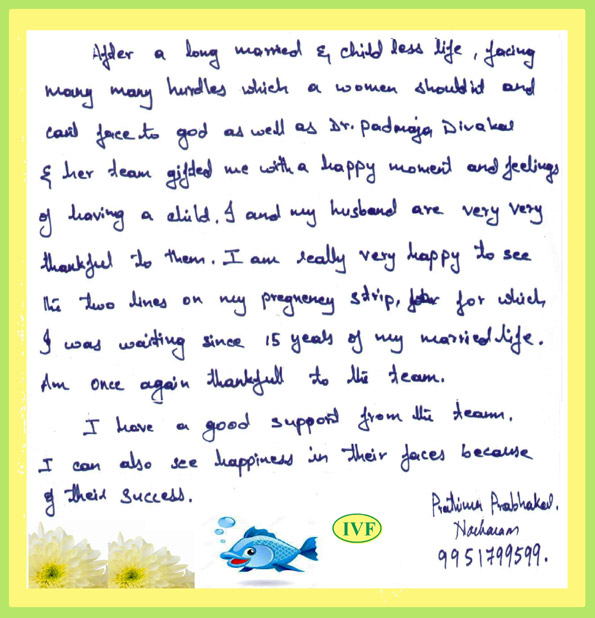 After a long married & child less life, facing
many many hurdles which a women shouldnt and
cant face to god as well as Dr. Padmaja Divakar
& her team gifted me with a happy moment and feelings
of having a child. I and my husband are very very
thankful to them. I am really very happy to see
the two lines on my pregnency strip, for which,
I was waiting since 15 years of my married life.
Am once again thankfull to the team.
I have a good support from the team.
I can also see happiness in their faces because
of their success.
Prabhakar.
Nacharam
9951799599.
IVF